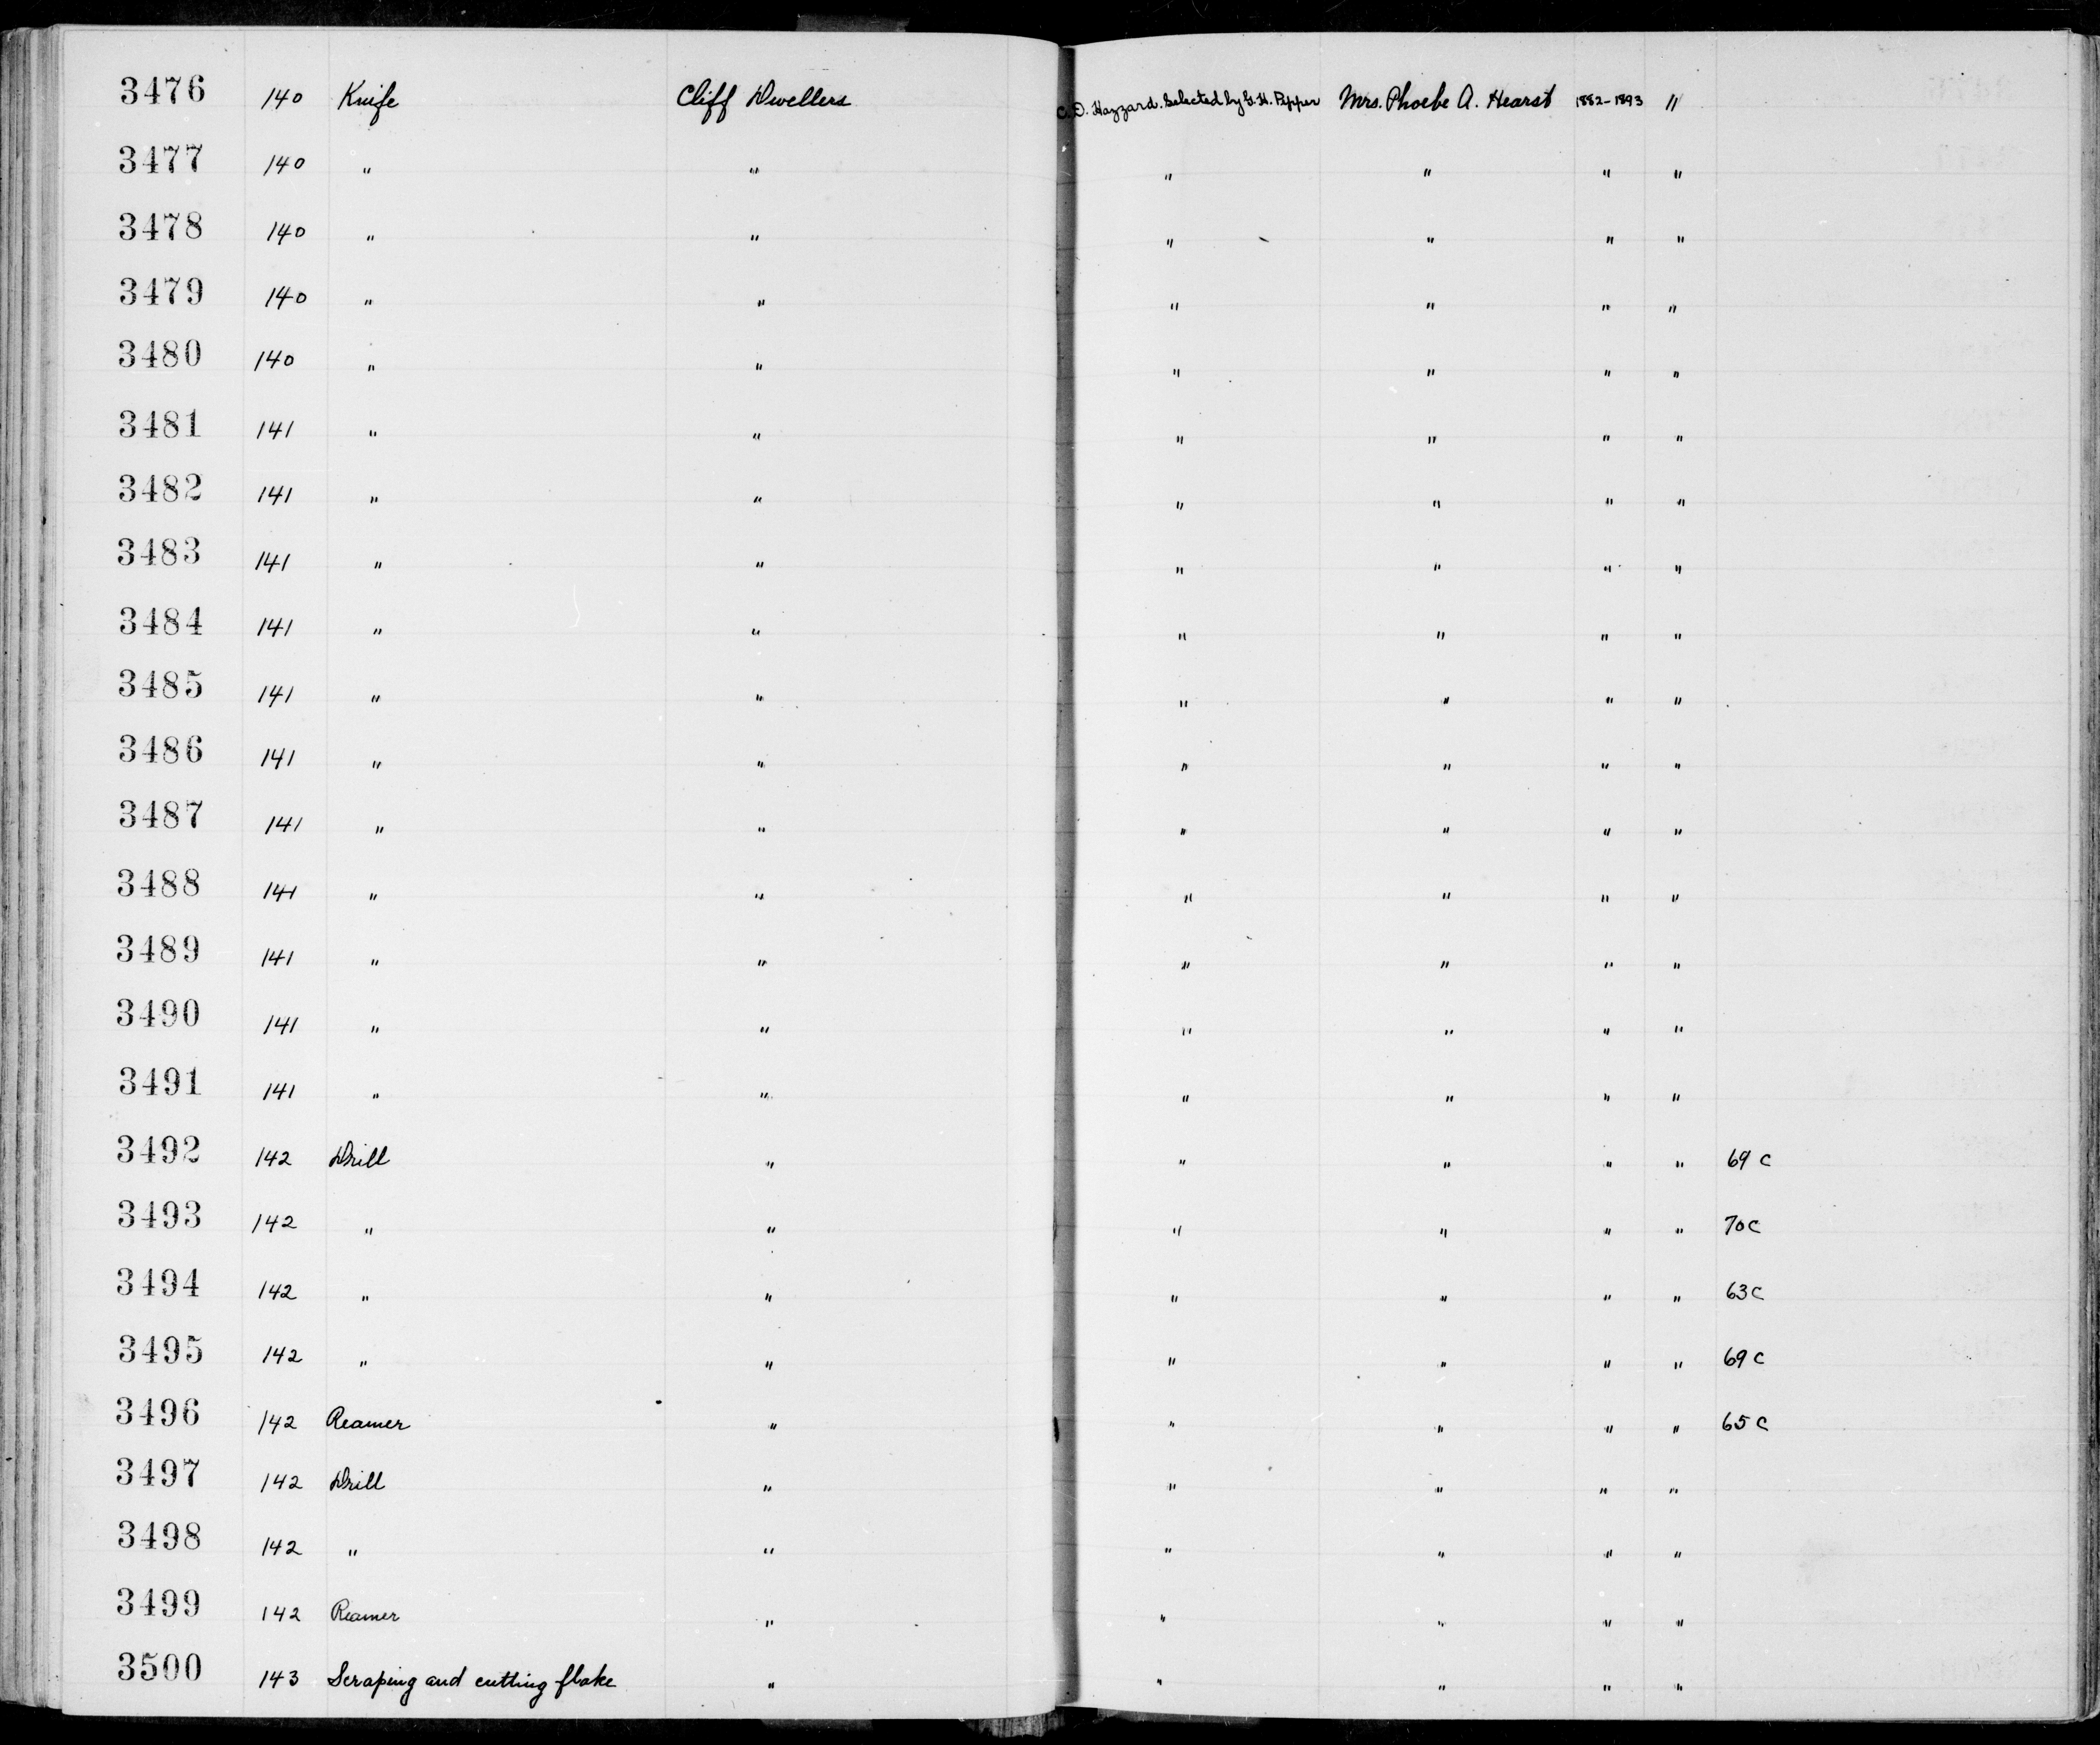 3476 140 Knife Cliff Dwellers C. D. Hazzard. Selected by G. H. Pepper Mrs. Phoebe A. Hearst 1882-1893 "
3477 140 " " " " " "
3478 140 " " " " " "
3479 140 " " " " " "
3480 140 " " " " " "
3481 141 " " " " " "
3482 141 " " " " " "
3483 141 " " " " " "
3484 141 " " " " " "
3485 141 " " " " " "
3486 141 " " " " " "
3487 141 " " " " " "
3488 141 " " " " " "
3489 141 " " " " " "
3490 141 " " " " " "
3491 141 " " " " " "
3492 142 Drill " " " " " 69 C
3493 142 " " " " " " 70 C
3494 142 " " " " " " 63 C
3495 142 " " " " " " 69 C
3496 142 Reamer " " " " " 65 C
3497 142 Drill " " " " "
3498 142 " " " " " "
3499 142 Reamer " " " " "
3500 143 Scraping and cutting flake " " " " "